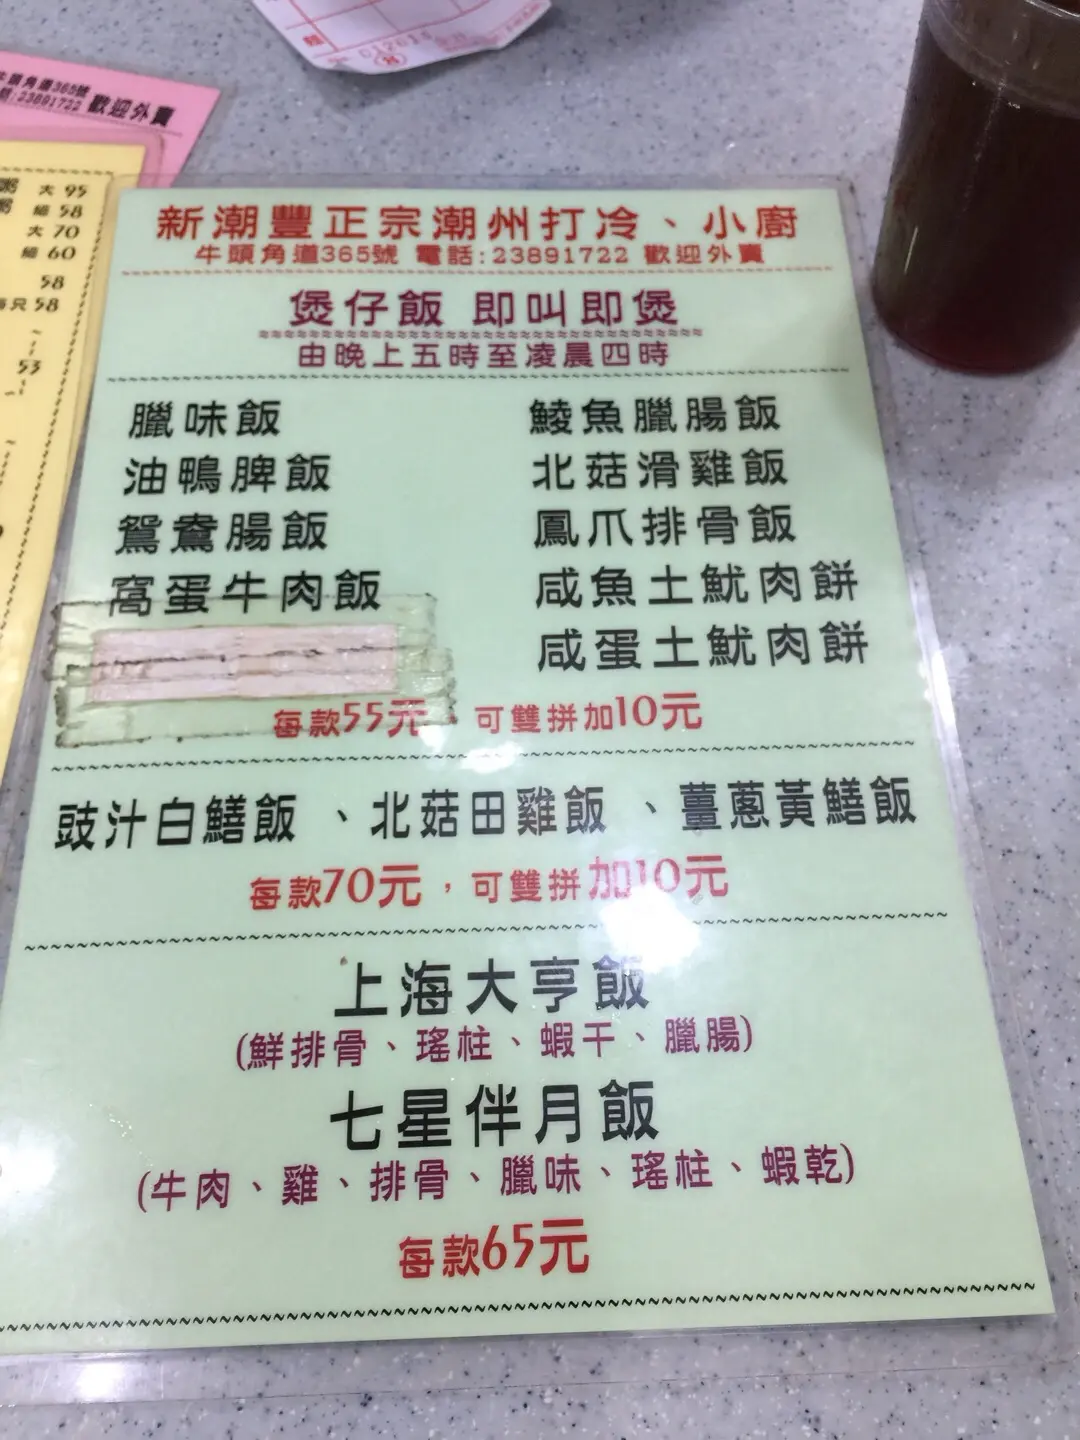 牛頭角道365號
:23891722 歡迎外賣
大 95
細 58
大 70
細 60
58
每只 58
53
新潮豐正宗潮州打冷、小廚
牛頭角道365號 電話:23891722 歡迎外賣
煲仔飯 即叫即煲
由晚上五時至凌晨四時
臘味飯
油鴨脾飯
鴛鴦腸飯
窩蛋牛肉飯
鯪魚臘腸飯
北菇滑雞飯
鳳爪排骨飯
咸魚土魷肉餅
咸蛋土魷肉餅
每款55元，可雙拼加10元
豉汁白鱔飯、北菇田雞飯、薑蔥黃鱔飯
每款70元，可雙拼加10元
上海大亨飯
(鮮排骨、瑤柱、蝦干、臘腸)
七星伴月飯
(牛肉、雞、排骨、臘味、瑤柱、蝦乾)
每款65元